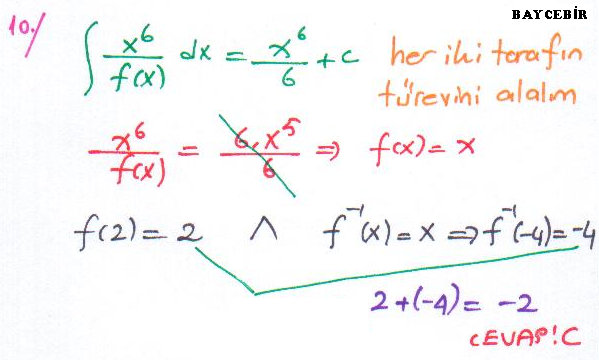 BAYCEBİR
10./ ∫ x⁶/f(x) dx = x⁶/6 + c her iki tarafın
türevini alalım
x⁶/f(x) = 6.x⁵/6 ⇒ f(x) = x
f(2) = 2 ∧ f⁻¹(x) = x ⇒ f⁻¹(-4) = -4
2+(-4) = -2
CEVAP!C